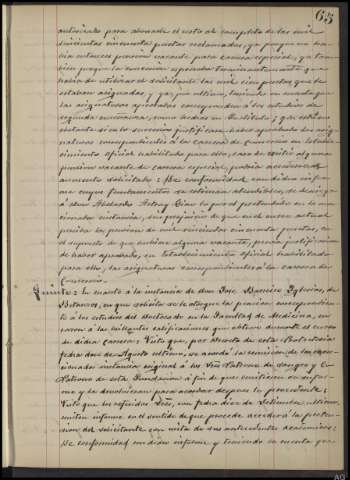 65
autorizada para abonarle el resto al completo de las mil
doscientas cincuenta pesetas reclamadas, ya porque no ha-
bía entonces pensión vacante para carrera especial, ya tam-
bién porque la concesión expresaba terminantemente que
había de utilizar el solicitante las mil cien pesetas que le
estaban asignadas y que por último, teniendo en cuenta que
las asignaturas aprobadas correspondían á los estudios de
segunda enseñanza, como hechas en Instituto; que esto no
obstante si en lo sucesivo justificara haber aprobado las asig-
naturas correspondientes á la carrera de Comercio en Estable-
cimiento oficial habilitado para ello, caso de existir alguna
pensión vacante de carrera especial, podría accederse al
aumento solicitado: De conformidad con dicho infor-
me cuyos fundamentos se estiman atendibles, se deniega
á don Abelardo lo por el pretendido en la men-
cionada instancia, sin perjuicio de que en el curso actual
perciba la pensión de mil doscientas cincuenta pesetas, en
el supuesto de que exista alguna vacante, previa justificación
de haber aprobado, en establecimiento oficial habilitado
para ello, las asignaturas correspondientes á la carrera de
Comercio.
Quinto: En cuanto á la instancia de don José Barreiro Iglesias, de
Betanzos, en que solicita se le otorgue la pensión correspondien-
te á los estudios del doctorado en la Facultad de Medicina, en
razón á las brillantes calificaciones que obtuvo durante el curso
de dicha carrera: Visto que, por decreto de esta Presidencia
fecha doce de Agosto último, se acordó la remisión de la men-
cionada instancia original á los Sres Patrono de sangre y Co-
Patrono de esta Fundación á fin de que emitiesen su infor-
me y la devolviesen para acordar después lo procedente:
Visto que los referidos Sres, con fecha diez de Setiembre último,
emiten informe en el sentido de que procede acceder á la preten-
sión del solicitante con vista de sus antecedentes académicos:
De conformidad con dicho informe y teniendo en cuenta que